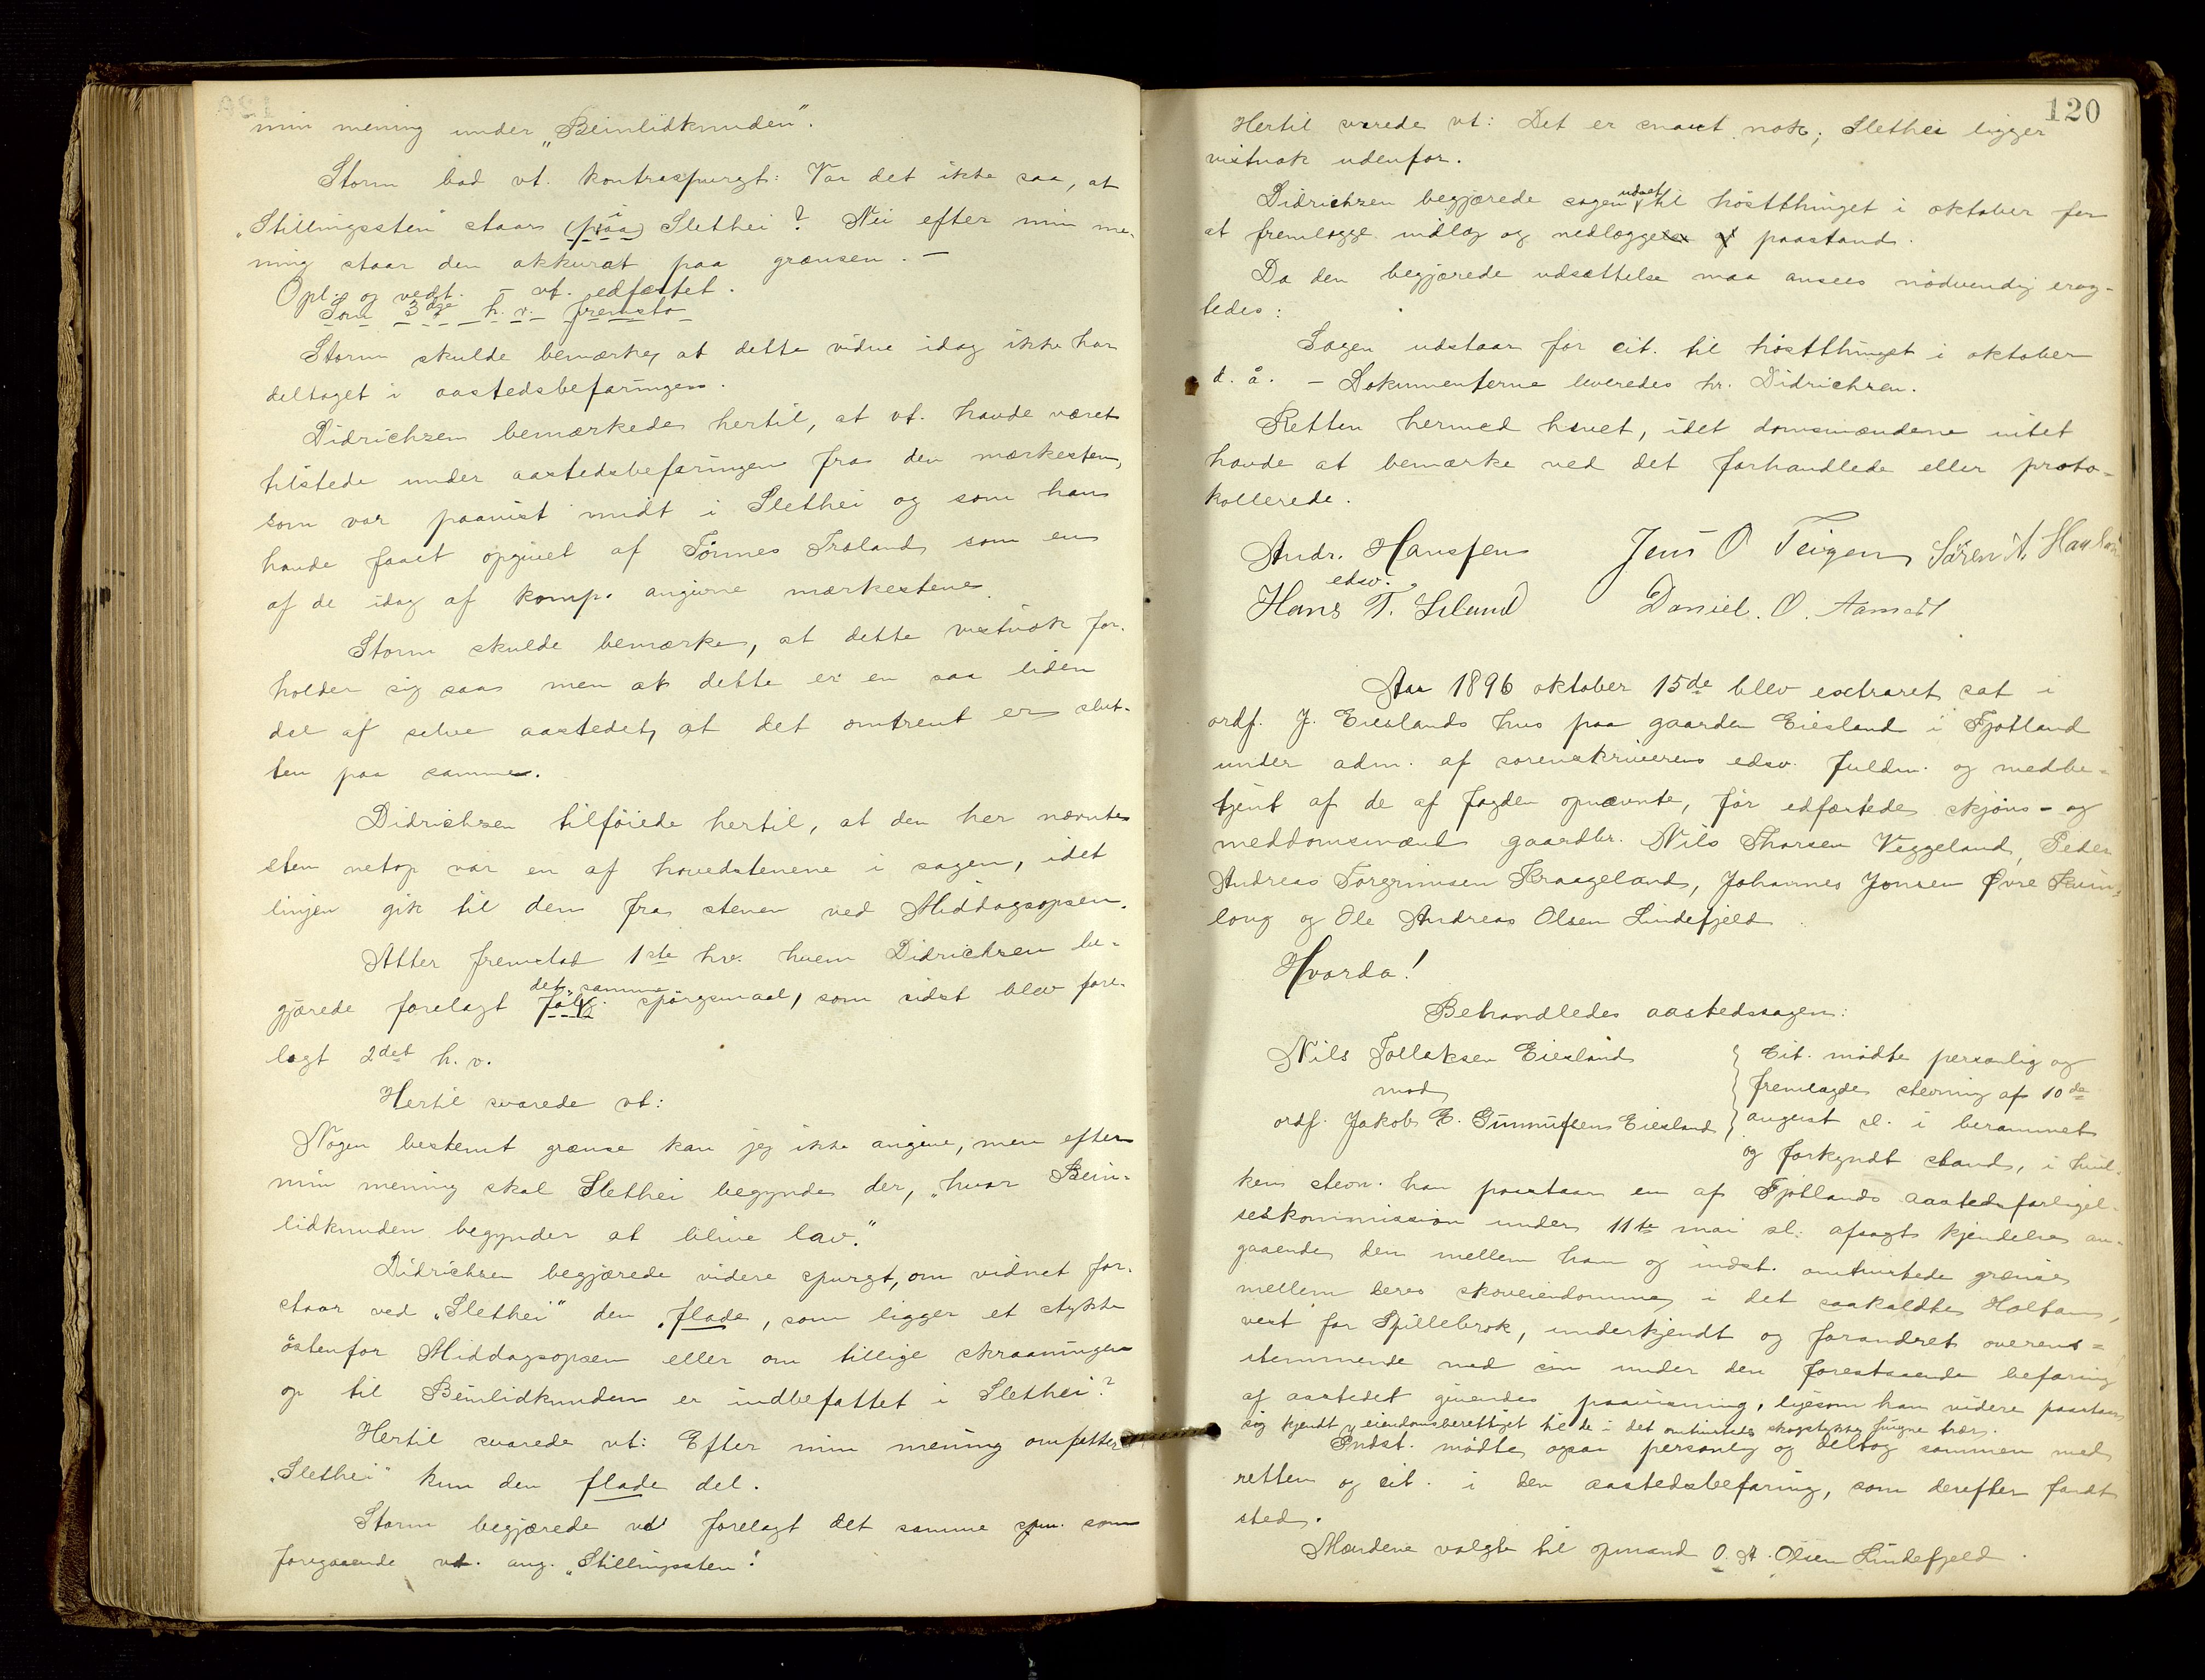 min mening under „Beinlidknuden".
Storm bad vt. kontraspurgt: Var det ikke saa, at
„Stillingssten" staar (paa) i Slethei? Nei efter min me-
ning staar den akkurat paa grænsen. –
Opl. og vedt. – vt. edfæstet.
Som 3die h. v. fremsto
Storm skulde bemærke, at dette vidne idag ikke har
deltaget i aastedsbefaringen.
Didrichsen bemærkede hertil, at vt. havde været
tilstede under aastedsbefaringen fra den mærkesten,
som var paavist midt i Slethei og som han
havde faaet opgivet af Tönnes Træland som en
af de idag af komp. angivne mærkestene.
Storm skulde bemærke, at dette vistnok for-
holder sig saa men at dette er en saa liden
del af selve aastedet, at det omtrent er slut-
ten paa samme.
Didrichsen tilföiede hertil, at den her nævnte
sten netop var en af hovedstenene i sagen, idet
linjen gik til den fra stenen ved Middagsopsen.
Atter fremstod 1ste hv. hvem Didrichsen be-
gjærede forelagt følg. det samme spörgsmaal, som sidst blev fore-
lagt 2det h. v.
Hertil svarede vt:
Nogen bestemt grænse kan jeg ikke angive, men efter
min mening skal Slethei begynde der, „hvor Bein-
lidknuden begynder at blive lav."
Didrichsen begjærede videre spurgt, om vidnet for-
staar ved „Slethei" den flade, som ligger et stykke
östenfor Middagsopsen eller om tillige skraaningen
op til Beinlidknuden er indbefattet i Slethei?
Hertil svarede vt: Efter min mening omfatter
„Slethei" kun den flade del.
Storm begjærede vd forelagt det samme spm. som
foregaaende vd. ang. „Stillingssten!
120
Hertil svarede vt: Det er snart nok; Slethei ligger
vistnok udenfor.
Didrichsen begjærede sagen udsat til höstthinget i oktober for
at fremlægge indlæg og nedlægge paastand.
Da den begjærede udsættelse maa ansees nödvendig erag-
tedes:
Sagen udstaar for cit. til höstthinget i oktober
d. å. – Dokumenterne leveredes hr. Didrichsen.
Retten hermed hævet, idet domsmændene intet
havde at bemærke ved det forhandlede eller proto-
kollerede.
Andr. Hanssen Jens O Teigen Sören A. Haugland
edsv.
Hans T. Liland Daniel. O. Aamodt
Aar 1896 oktober 15de blev extraret sat i
ordf. J. Eieslands hus paa gaarden Eiesland i Fjotland
under adm. af sorenskriverens edsv. fuldm. og medbe-
tjent af de af fogden opnævnte, för edfæstede skjöns- og
meddomsmænd gaardbr. Nils Tharsen Veggeland, Peder
Andreas Torgrimsen Kraageland, Johannes Jonsen Øvre Kvin-
log og Ole Andreas Olsen Lindefjeld
Hvorda!
Behandledes aastedssagen:
Nils Tolleksen Eiesland
mod
ordf. Jakob E. Gunnufsen Eiesland
Cit. mödte personlig og
fremlagde stevning af 10de
august sl. i berammet
og forkyndt stand, i hvil-
ken stevn. han paastaar en af Fjotlands aastedsforligel-
seskommission under 11te mai sl. afsagt kjendelse an-
gaaende den mellem ham og indst. omtvistede grænse
mellem deres skoveiendomme i det saakaldte Holtan,
vest for Spillebrok, underkjendt og forandret overens-
stemmende med sin under den forestaaende befaring
af aastedet givendes paavisning, ligesom han videre paastaar
sig kjendt eiendomsberettiget til de i det omtvistede skogstykke fungne trær.
Indst. mödte ogsaa personlig og deltog sammen med
retten og cit. i den aastedsbefaring, som derefter fandt
sted.
Mændene valgte til opmand O. A. Olsen Lindefjeld.